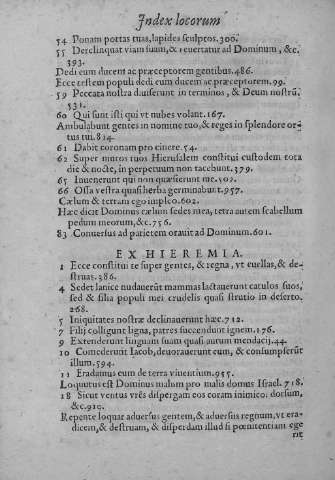 Index locorum
54 Ponam portas tuas, lapides sculptos. 300.
55 Derelinquat viam suam, & reuertatur ad Dominum, &c.
393.
Dedi eum ducem ac præceptorem gentibus. 486.
Ecce testem populi dedi eum ducem ac præceptorem. 99.
59 Peccata nostra diuiserunt in terminos, & Deum nostrũ.
531.
60 Qui sunt isti qui vt nubes volant. 167.
Ambulabunt gentes in nomine tuo, & reges in splendore or-
tus tui. 824.
61 Dabit coronam pro cinere. 54.
62 Super muros tuos Hierusalem constitui custodem tota
die & nocte, in perpetuum non tacebunt. 379.
65 Inuenerunt qui non quæsierunt me. 502.
66 Ossa vestra quasi herba germinabunt. 957.
Cælum & terram ego impleo. 602.
Hæc dicit Dominus cælum sedes mea, terra autem scabellum
pedum meorum, &c. 756.
83 Conuersus ad parietem orauit ad Dominum. 601.
EX HIEREMIA.
1 Ecce constitui te super gentes, & regna, vt euellas, & de-
struas. 386.
4 Sed et lanicæ nudauerũt mammas lactauerunt catulos suos,
sed & filia populi mei crudelis quasi strutio in deserto.
268.
5 Iniquitates nostræ declinauerunt hæc. 712.
7 Filij colligunt ligna, patres succendunt ignem. 176.
9 Extenderunt linguam suam quasi autum mendacij. 44.
10 Comederunt Iacob, deuorauerunt eum, & consumpserũt
illum. 594.
11 Eradamus eum de terra viuentium. 955.
Loquutus est Dominus malum pro malis domus Israel. 718.
18 Sicut ventus vrẽs dispergam eos coram inimico: dorsum,
&c. 910.
Repente loquar aduersus gentem, & aduersus regnum, vt era-
dicem, & destruam, & disperdam illud si pœnitentiam ege
rit